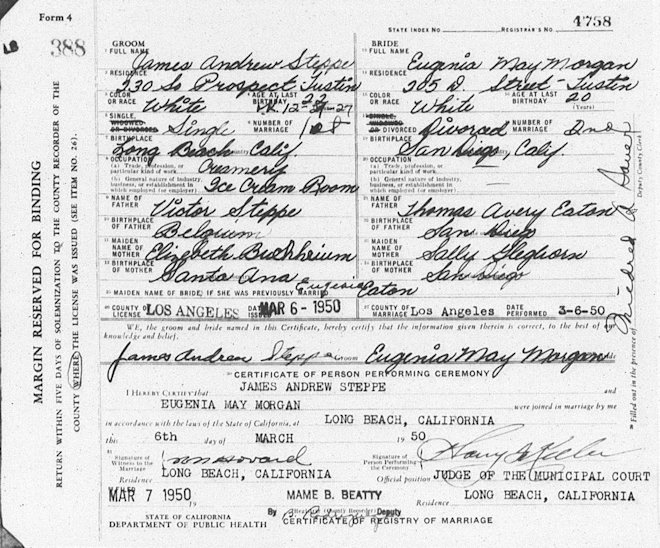 Form 4
388
4758
STATE INDEX NO. REGISTRAR'S NO.
GROOM
FULL NAME
James Andrew Steppe
RESIDENCE
230 So Prospect, Tustin
COLOR OR RACE White AGE AT LAST BIRTHDAY 22
12-24-27
SINGLE, WIDOWED OR DIVORCED Single NUMBER OF MARRIAGE 1st
BIRTHPLACE
Long Beach Calif.
OCCUPATION
(a) Trade, profession, or particular kind of work Creamery
(b) General nature of industry, business, or establishment in which employed (or employer) Ice Cream Room
NAME OF FATHER Victor Steppe
BIRTHPLACE OF FATHER Belgium
MAIDEN NAME OF MOTHER Elizabeth
BIRTHPLACE OF MOTHER Santa Ana
BRIDE
FULL NAME
Eugenia May Morgan
RESIDENCE
205 D. Street - Tustin
COLOR OR RACE White AGE AT LAST BIRTHDAY 20 (Years)
SINGLE, WIDOWED OR DIVORCED Divorced NUMBER OF MARRIAGE 2nd
BIRTHPLACE
San Diego, Calif
OCCUPATION
(a) Trade, profession, or particular kind of work
(b) General nature of industry, business, or establishment in which employed (or employer)
NAME OF FATHER Thomas Avery Eaton
BIRTHPLACE OF FATHER San Diego
MAIDEN NAME OF MOTHER Sally Gleghorn
BIRTHPLACE OF MOTHER San Diego
MAIDEN NAME OF BRIDE, IF SHE WAS PREVIOUSLY MARRIED Eugenia Eaton
COUNTY OF LICENSE LOS ANGELES DATE ISSUED MAR 6 - 1950
COUNTY OF MARRIAGE Los Angeles DATE PERFORMED 3-6-50
WE, the groom and bride named in this Certificate, hereby certify that the information given therein is correct, to the best of my knowledge and belief.
James Andrew Steppe Groom Eugenia May Morgan Bride
CERTIFICATE OF PERSON PERFORMING CEREMONY
JAMES ANDREW STEPPE
I HEREBY CERTIFY that and
EUGENIA MAY MORGAN were joined in marriage by me
in accordance with the laws of the State of California, at LONG BEACH, CALIFORNIA
this 6th day of MARCH 1950
Signature of Witness to the Marriage
Residence LONG BEACH, CALIFORNIA
Signature of Person Performing the Ceremony
Official position JUDGE OF THE MUNICIPAL COURT
MAR 7 1950 19
MAME B. BEATTY
Residence LONG BEACH, CALIFORNIA
By Deputy
STATE OF CALIFORNIA
DEPARTMENT OF PUBLIC HEALTH
CERTIFICATE OF REGISTRY OF MARRIAGE
MARGIN RESERVED FOR BINDING
RETURN WITHIN FIVE DAYS OF SOLEMNIZATION TO THE COUNTY RECORDER OF THE
COUNTY WHERE THE LICENSE WAS ISSUED (SEE ITEM NO. 26).
Filled out in the presence of Mildred Deputy County Clerk